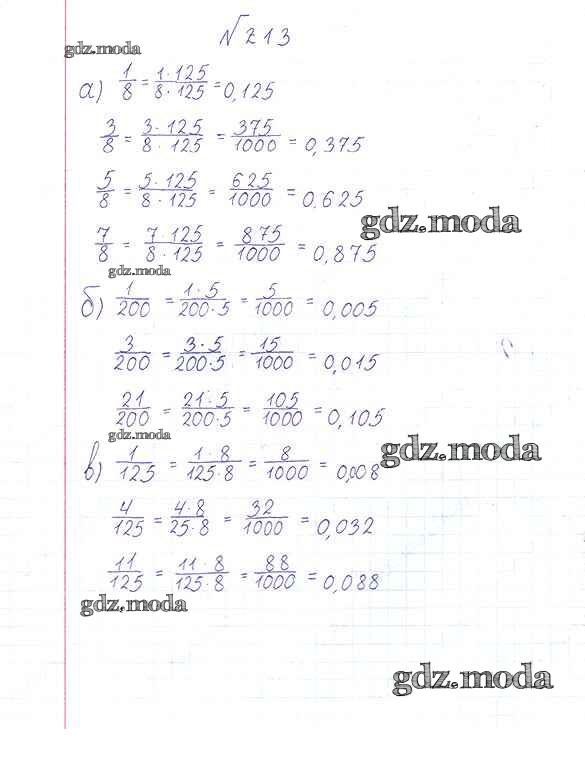 №213
gdz.moda
а) 1/8 = 1·125/8·125 = 0,125
3/8 = 3·125/8·125 = 375/1000 = 0,375
5/8 = 5·125/8·125 = 625/1000 = 0.625
gdz.moda
7/8 = 7·125/8·125 = 875/1000 = 0,875
gdz.moda
б) 1/200 = 1·5/200·5 = 5/1000 = 0,005
3/200 = 3·5/200·5 = 15/1000 = 0,015
21/200 = 21·5/200·5 = 105/1000 = 0,105
gdz.moda
gdz.moda
в) 1/125 = 1·8/125·8 = 8/1000 = 0,008
4/125 = 4·8/25·8 = 32/1000 = 0,032
11/125 = 11·8/125·8 = 88/1000 = 0,088
gdz.moda
gdz.moda